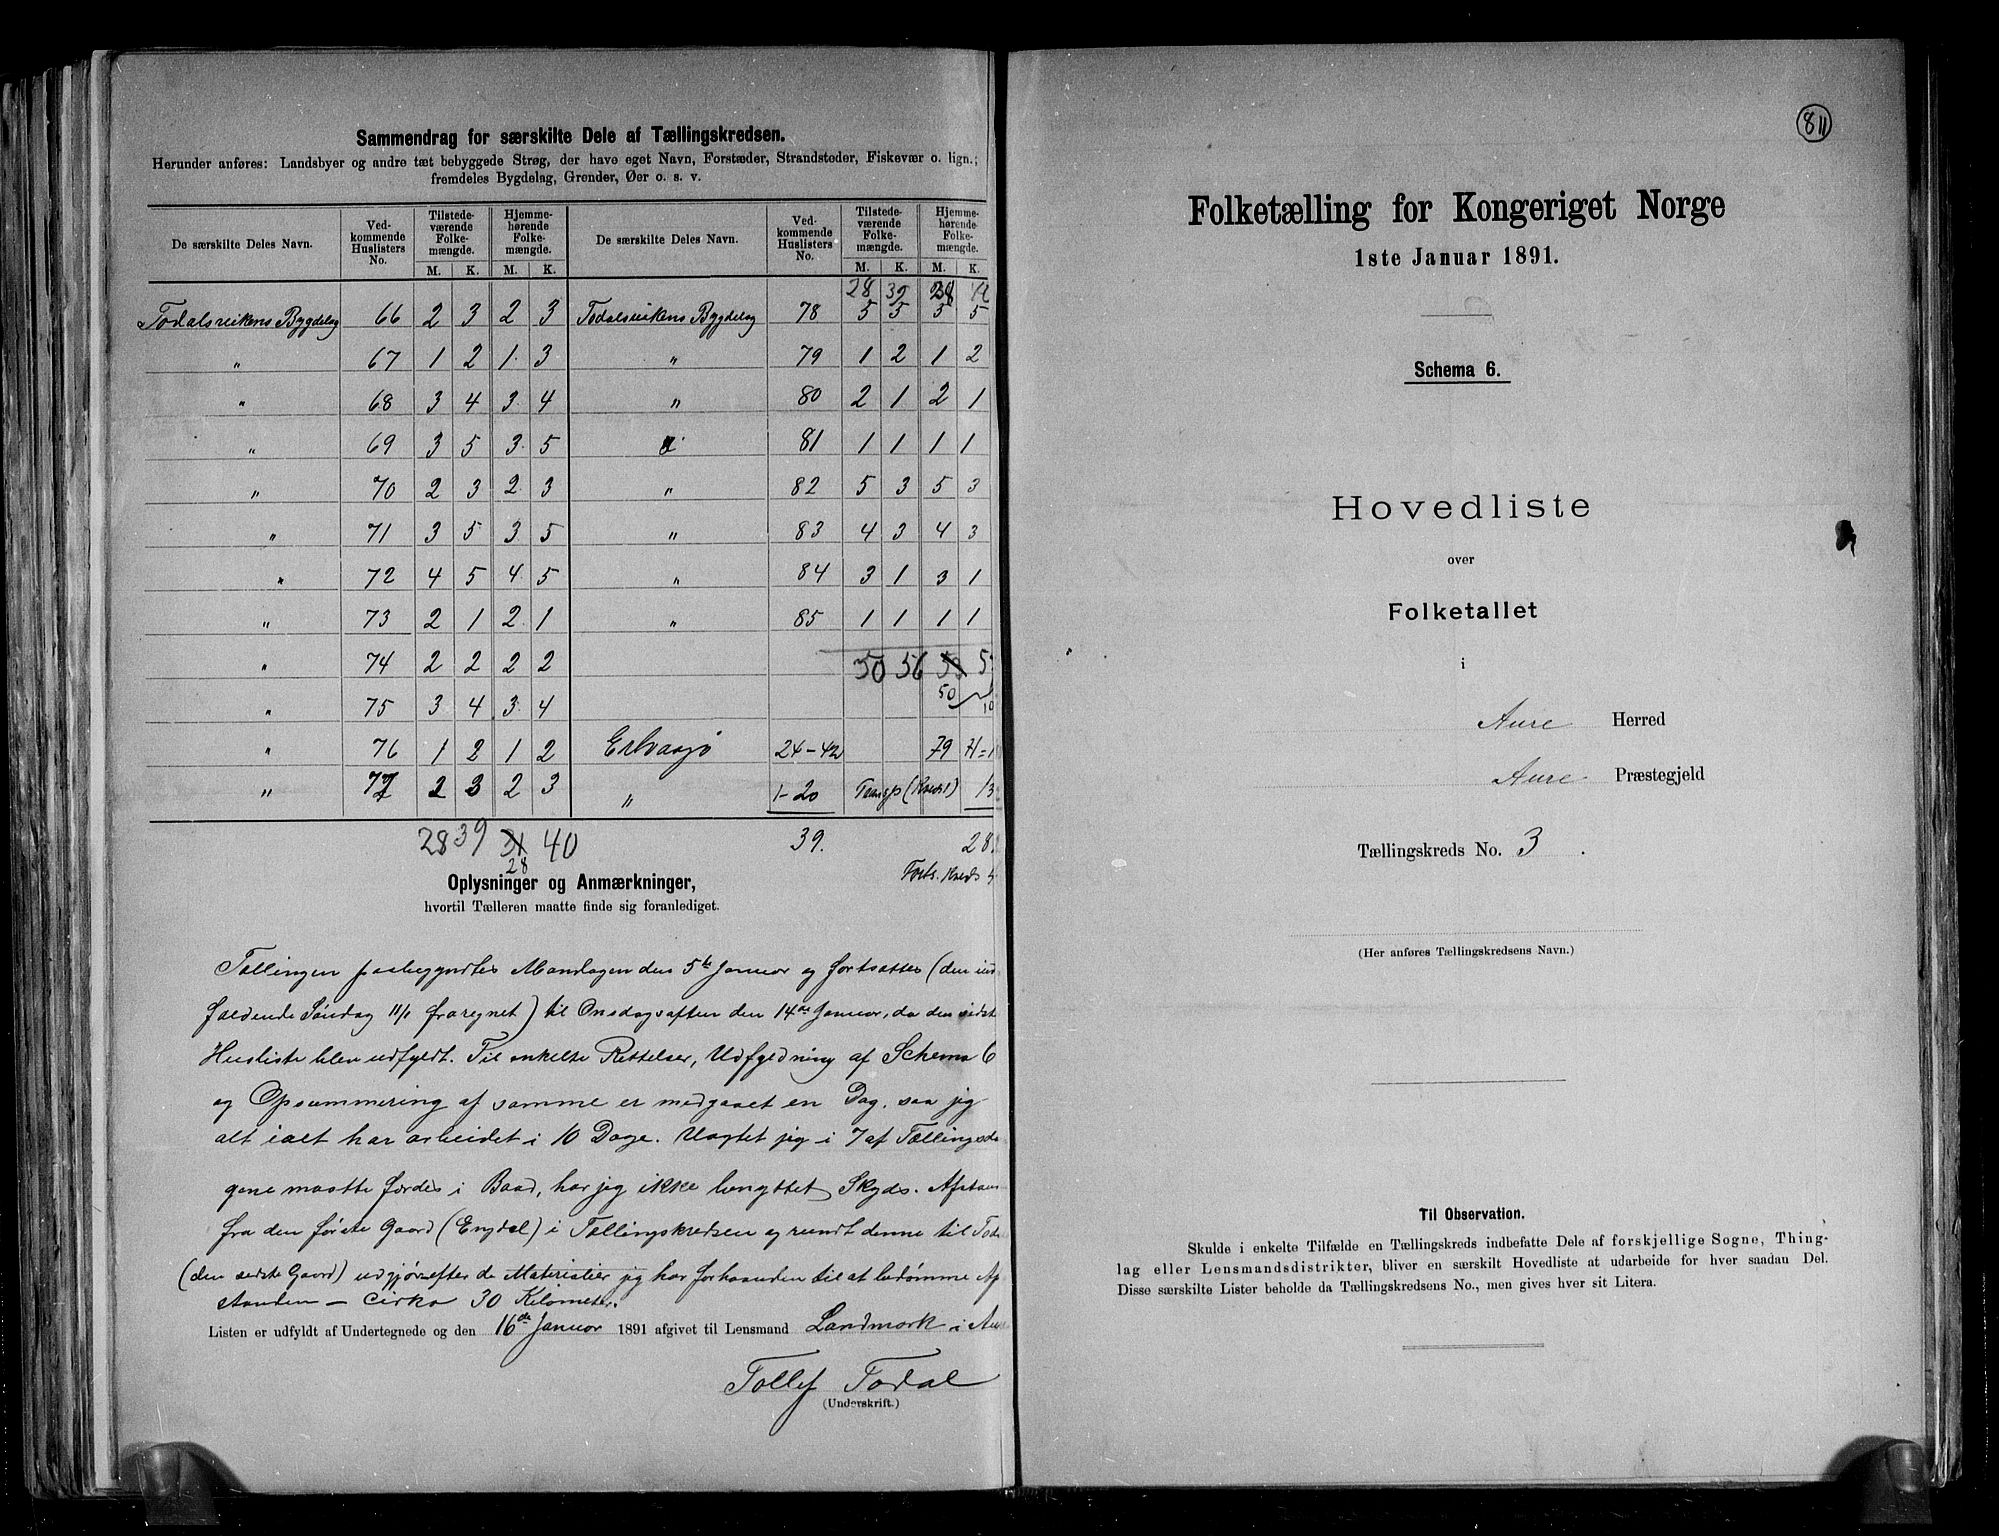 Sammendrag for særskilte Dele af Tællingskredsen.
Herunder anføres: Landsbyer og andre tæt bebyggede Strøg, der have eget Navn, Forstæder, Strandsteder, Fiskevær o. lign.;
fremdeles Bygdelag, Grender, Øer o. s. v.
De særskilte Deles Navn. Ved-kommende Huslisters No. Tilstede-værende Folke-mængde. Hjemme-hørende Folke-mængde. De særskilte Deles Navn. Ved-kommende Huslisters No. Tilstede-værende Folke-mængde. Hjemme-hørende Folke-mængde.
M. K. M. K. M. K. M. K.
28 39 28
Todalsvikens Bygdelag 66 2 3 2 3 Todalsvikens Bygdelag 78 5 5 5 5
" 67 1 2 1 3 " 79 1 2 1 2
" 68 3 4 3 4 " 80 2 1 2 1
" 69 3 5 3 5 " 81 1 1 1 1
" 70 2 3 2 3 " 82 5 3 5 3
" 71 3 5 3 5 " 83 4 3 4 3
" 72 4 5 4 5 " 84 3 1 3 1
" 73 2 1 2 1 " 85 1 1 1 1
" 74 2 2 2 2 50 56 53 5
" 75 3 4 3 4 50
" 76 1 2 1 2 24-42 79 71=1
" 77 2 3 2 3 " 1-20 Transp (Kreds 1) 13
28 39 31 40 39. 28
28 Forts. Kreds 4
Oplysninger og Anmærkninger,
hvortil Tælleren maatte finde sig foranlediget.
Tællingen paabegyndtes Mandagen den 5te Januar og fortsattes (den ind
faldende Søndag 11/1 fraregnet) til Onsdagsaften den 14de Januar, da den sidste
Husliste blev udfyldt. Til enkelte Rettelser, Udfyldning af Schema 6
og Opsummering af samme er medgaaet en Dag, saa jeg
alt ialt har arbeidet i 10 Dage. Uagtet jeg i 7 af Tællingsda
gene maatte færdes i Baad, har jeg ikke benyttet Skyds. Afstan
fra den første Gaard (Engdal) i Tællingskredsen og rundt denne til Tod
(den sidste Gaard) udgjør efter de Materialier jeg har forhaanden til at bedømme Af
standen – cirka 30 Kilometer.
Listen er udfyldt af Undertegnede og den 16de Januar 1891 afgivet til Lensmand Landmark i Aure
Tollef Todal
(Underskrift.)
811
Folketælling for Kongeriget Norge
1ste Januar 1891.
Schema 6.
Hovedliste
over
Folketallet
i
Aure Herred
Aure Præstegjeld
Tællingskreds No. 3.
(Her anføres Tællingskredsens Navn.)
Til Observation.
Skulde i enkelte Tilfælde en Tællingskreds indbefatte Dele af forskjellige Sogne, Thing-
lag eller Lensmandsdistrikter, bliver en særskilt Hovedliste at udarbeide for hver saadan Del.
Disse særskilte Lister beholde da Tællingskredsens No., men gives hver sit Litera.